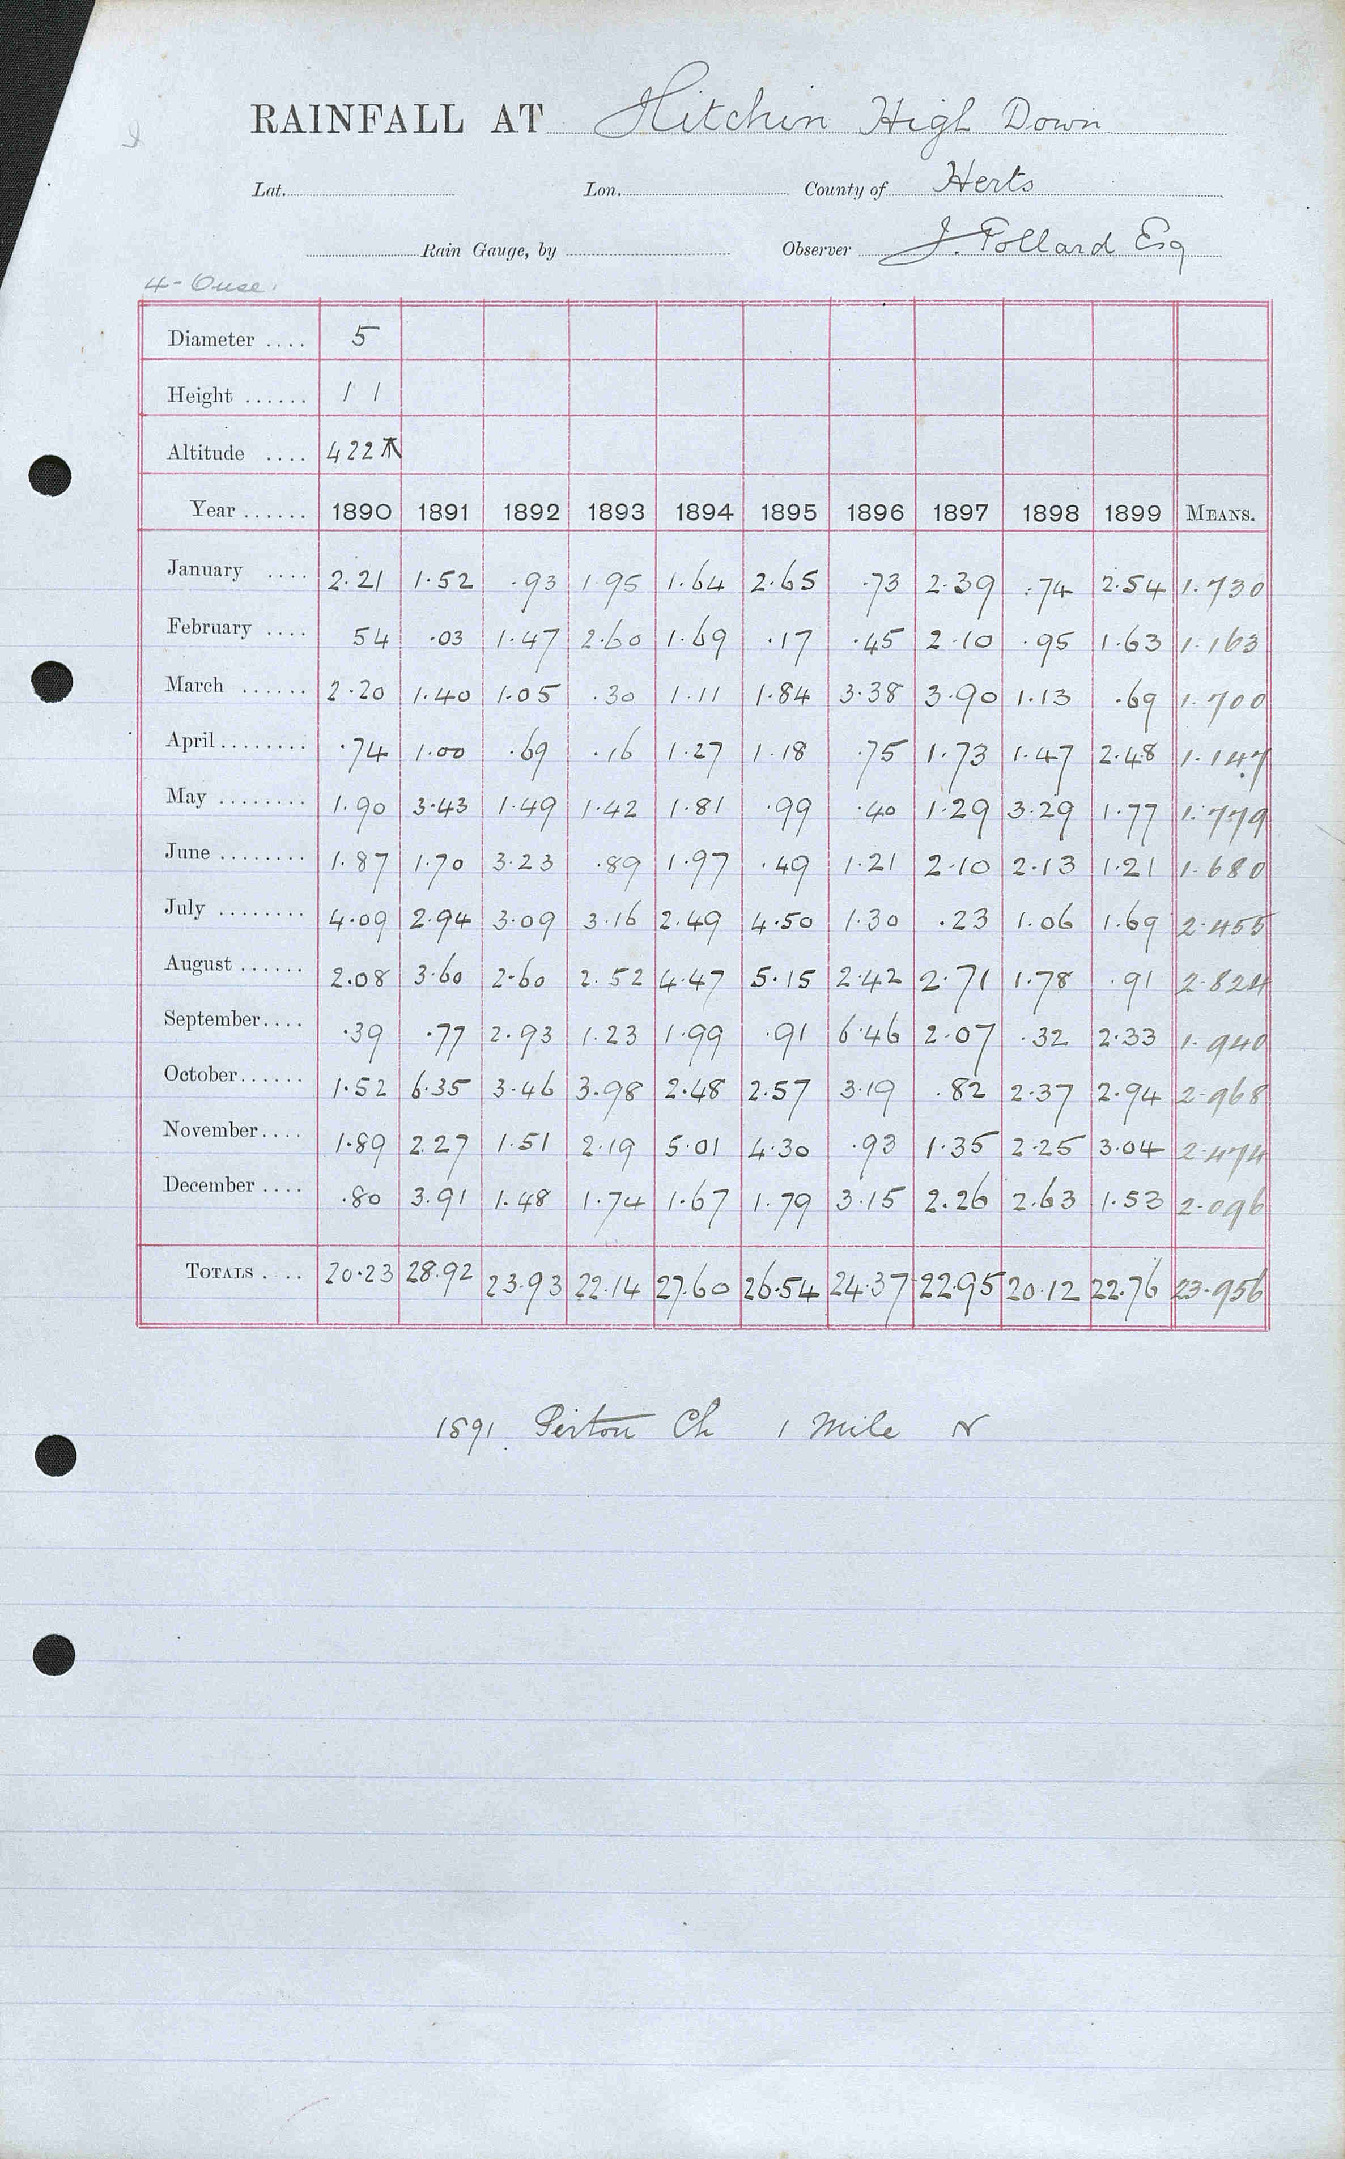 RAINFALL AT Hitchin High Down
Lat. Lon. County of Herts
Rain Gauge, by Observer J. Pollard Esq
4 - Ouse.
Diameter .... 5
Height ...... 1 1
Altitude .... 422
Year ...... 1890 1891 1892 1893 1894 1895 1896 1897 1898 1899 MEANS.
January .... 2.21 1.52 .93 1.95 1.64 2.65 .73 2.39 .74 2.54 1.730
February .... 54 .03 1.47 2.60 1.69 .17 .45 2.10 .95 1.63 1.163
March ...... 2.20 1.40 1.05 .30 1.11 1.84 3.38 3.90 1.13 .69 1.700
April ........ .74 1.00 .69 .16 1.27 1.18 .75 1.73 1.47 2.48 1.147
May ........ 1.90 3.43 1.49 1.42 1.81 .99 .40 1.29 3.29 1.77 1.779
June ........ 1.87 1.70 3.23 .89 1.97 .49 1.21 2.10 2.13 1.21 1.680
July ........ 4.09 2.94 3.09 3.16 2.49 4.50 1.30 .23 1.06 1.69 2.455
August ...... 2.08 3.60 2.60 2.52 4.47 5.15 2.42 2.71 1.78 .91 2.824
September.... .39 .77 2.93 1.23 1.99 .91 6.46 2.07 .32 2.33 1.940
October...... 1.52 6.35 3.46 3.98 2.48 2.57 3.19 .82 2.37 2.94 2.968
November.... 1.89 2.27 1.51 2.19 5.01 4.30 .93 1.35 2.25 3.04 2.474
December .... .80 3.91 1.48 1.74 1.67 1.79 3.15 2.26 2.63 1.53 2.096
TOTALS .... 20.23 28.92 23.93 22.14 27.60 26.54 24.37 22.95 20.12 22.76 23.956
1891 Pirton Ch 1 Mile N